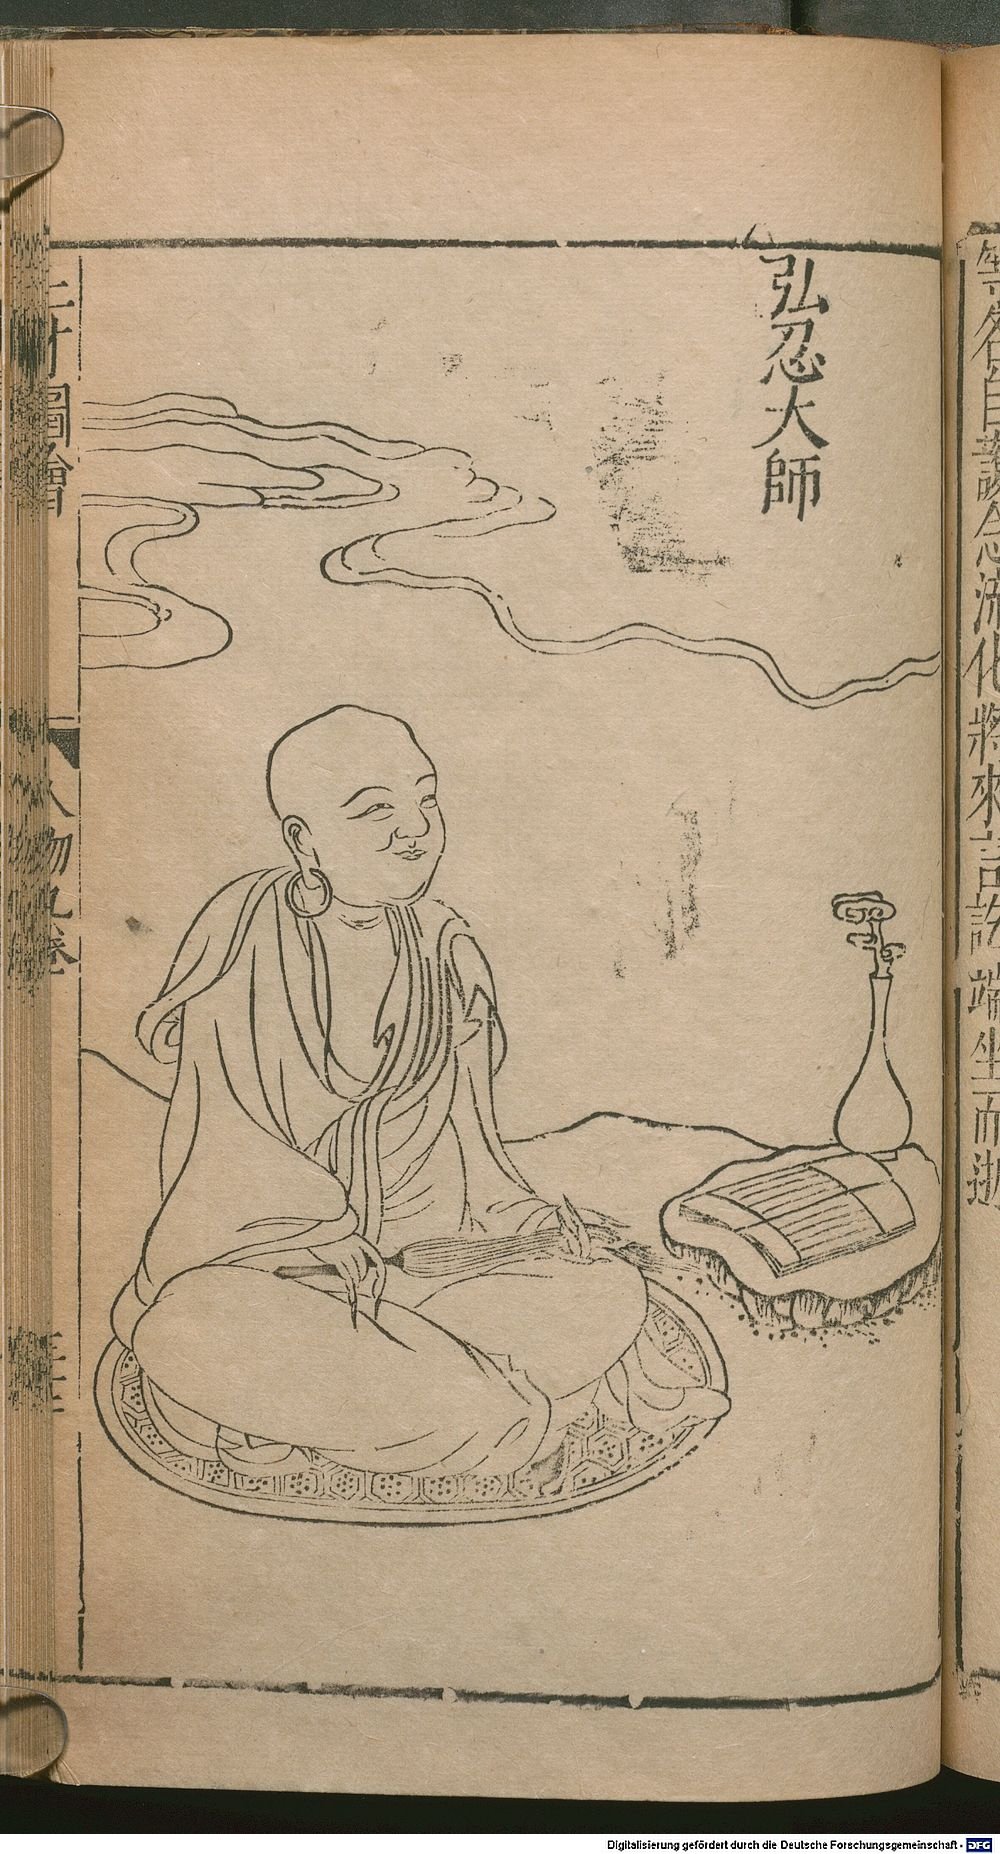 等名自誦念流化將來言訖端坐而逝
弘忍大師
三才圖會
人物九卷
Digitalisierung gefördert durch die Deutsche Forschungsgemeinschaft - DFG